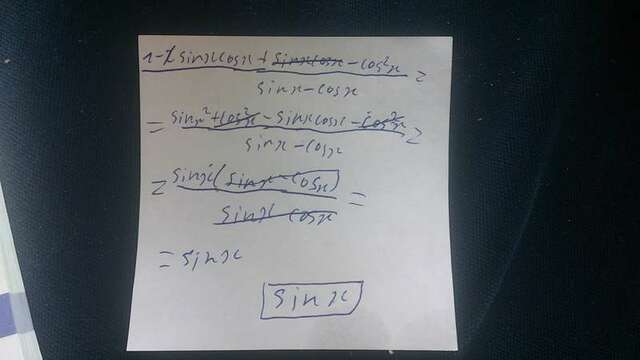 1-2 sinx cosx + sinx cosx - cos²x =
sinx - cosx
= sinx² + cos²x - sinx cosx - cos²x =
sinx - cosx
= sinx (sinx - cosx) =
sinx - cosx
= sinx
sinx